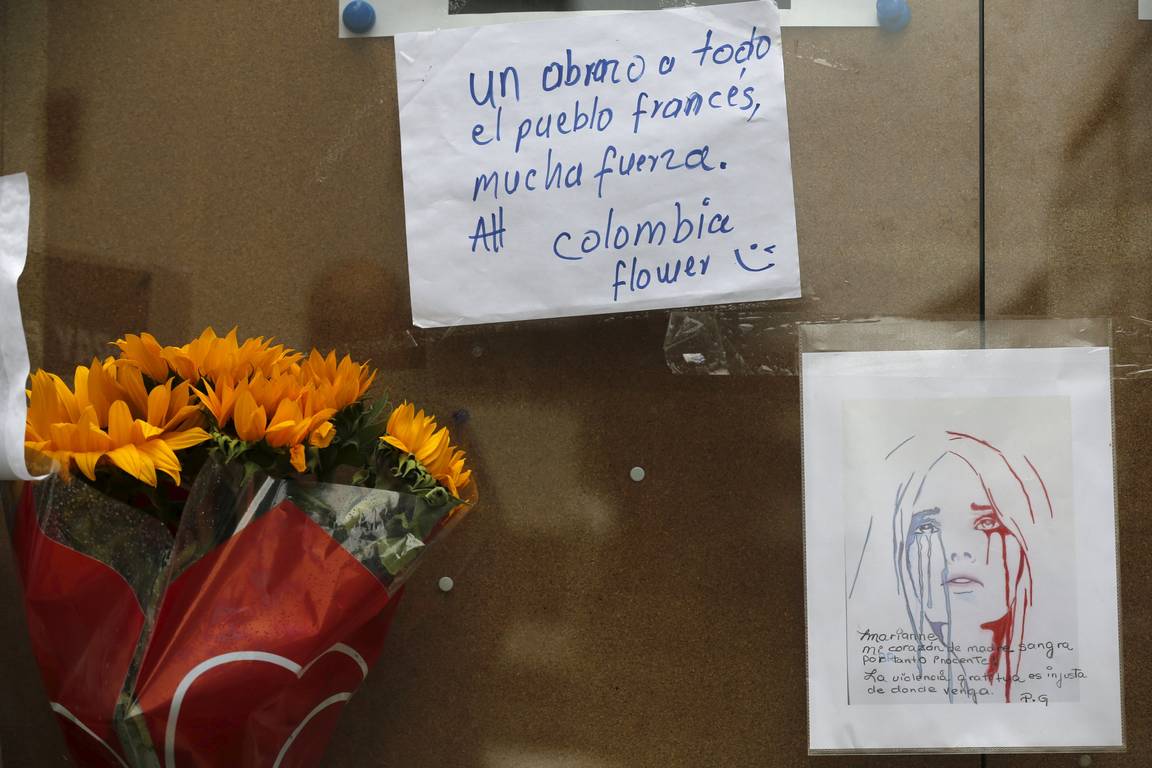 un abrazo a todo
el pueblo francés,
mucha fuerza.
Att colombia
flower
Marianne
mi corazón de madre sangra
por tanto inocente!
La violencia gratuita es injusta
de donde venga.
P.G